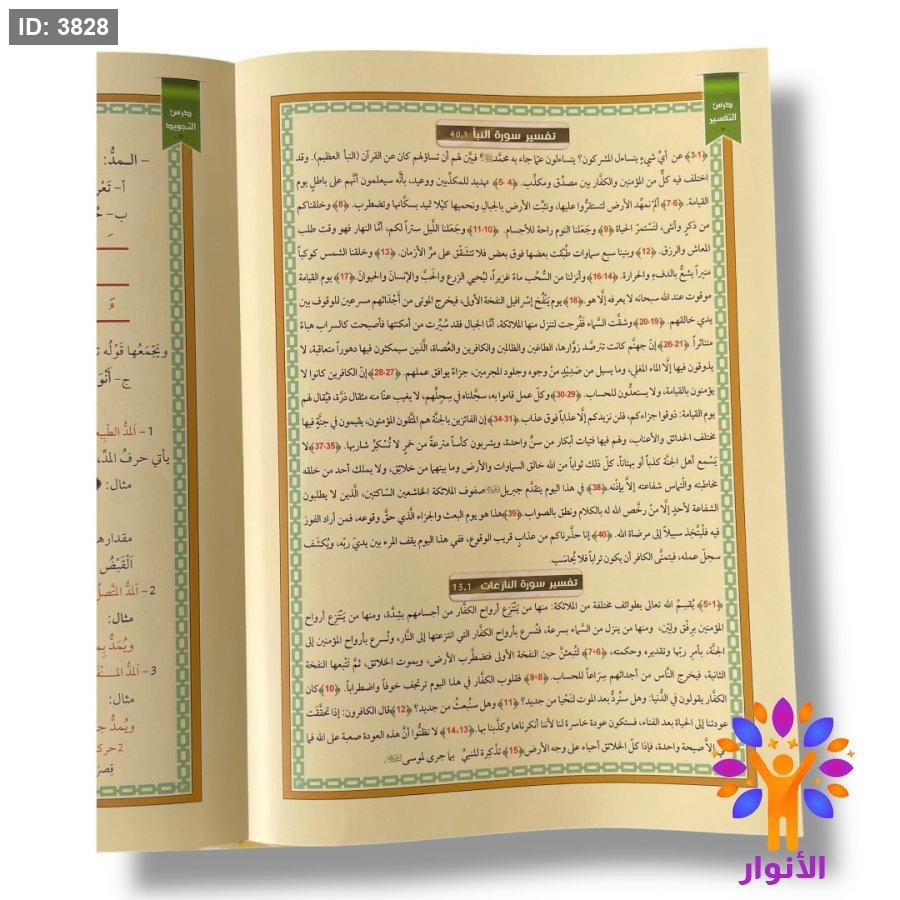 ID: 3828
درس
التفسير
تفسير سورة النبأ 1ـ40
﴿1-3﴾ عن أيِّ شيءٍ يتساءل المشركون؟ يتساءلون عمّا جاء به محمّد ﷺ؟ فبيَّن لهم أن تساؤلهم كان عن القرآن (النبأ العظيم). وقد
اختلف فيه كلٌّ من المؤمنين والكفّار بين مصدِّق ومكذِّب. ﴿4-5﴾ تهديد للمكذِّبين ووعيد، بأنَّه سيعلمون أنَّهم على باطلٍ يوم
القيامة. ﴿6-7﴾ ألم نمهِّد الأرض لتستقرُّوا عليها، ونثبِّت الأرض بالجبال ونحميها كيلا تميد بسكّانها وتضطرب. ﴿8﴾ وخلقناكم
من ذكرٍ وأنثى، لتستمرّ الحياة ﴿9﴾ وجعلنا النوم راحة للأجسام. ﴿10-11﴾ وجعلنا اللَّيل ستراً لكم، أمَّا النهار فهو وقت طلب
المعاش والرزق. ﴿12﴾ وبنينا سبع سماوات طُبِّقت بعضها فوق بعض فلا تتشقَّق على مرِّ الأزمان. ﴿13﴾ وخلقنا الشمس كوكباً
منيراً يشعُّ بالدفء والحرارة. ﴿14-16﴾ وأنزلنا من السُّحُب ماءً غزيراً، ليُحيي الزرع والحَبَّ والإنسانَ والحيوانَ. ﴿17﴾ يوم القيامة
موقوت عند الله سبحانه لا يعرفه إلَّا هو. ﴿18﴾ يوم يَنْفُخ إسرافيل النفخة الأولى، فيخرج الموتى من أجْدَاثهم مسرعين للوقوف بين
يدي خالقهم. ﴿19-20﴾ وشقَّت السَّماء فَفُرجت لتنزل منها الملائكة، أمَّا الجبال فقد سُيِّرت من أمكنتها فأصبحت كالسراب هباءً
متناثراً. ﴿21-26﴾ إنّ جهنَّم كانت تترصَّد زوَّارها، الطاغين والظالمين والكافرين والعُصاة، الَّذين سيمكثون فيها دهوراً متعاقبة، لا
يذوقون فيها إلَّا الماء المغلي، وما يسيل من صَدِيْدٍ مِنْ وجوه وجلود المجرمين، جزاءً يوافق عملهم. ﴿27-28﴾ إنّ الكافرين كانوا لا
يؤمنون بالقيامة، ولا يستعدُّون للحساب. ﴿29-30﴾ وكلّ عمل قاموا به، سجَّلناه في سِجِلِّهم، لا يغيب عنّا منه مثقال ذرَّة، فيُقال لهم
يوم القيامة: ذوقوا جزاءكم، فلن نزيدكم إلَّا عذاباً فوق عذاب. ﴿31-34﴾ إن الفائزين بالجنَّة هم المتَّقون المؤمنون، يقيمون في جنَّةٍ فيها
مختلف الحدائق والأعناب، ولهم فيها فتيات أبكار من سنٍّ واحدة، ويشربون كأساً مترعةً من خمرٍ لا تُسْكِرُ شاربها. ﴿35-37﴾ لا
يَسْمع أهل الجنَّة كذباً أو بهتاناً، كلّ ذلك ثواباً من الله خالق السماوات والأرض وما بينهما من خلائق، ولا يملك أحد من خلقه
مخاطبته والْتِماس شفاعته إلَّا بإذْنه. ﴿38﴾ في هذا اليوم يتقدَّم جبريل صفوف الملائكة الخاشعين السّاكتين، الَّذين لا يطلبون
الشفاعة لأحدٍ إلَّا مَنْ رخَّص الله له بالكلام ونطق بالصواب. ﴿39﴾ هذا هو يوم البعث والجزاء الَّذي حقَّ وقوعه، فمن أراد الفوز
فيه فلْيتَّخِذ سبيلاً إلى مرضاة الله. ﴿40﴾ إنا حذَّرناكم من عذابٍ قريب الوقوع، ففي هذا اليوم يقف المرء بين يديّ ربِّه، ويُكشَف
سجلّ عمله، فيتمنَّى الكافر أن يكون تراباً فلا يُحاسَب.
تفسير سورة النازعات 1ـ15
﴿1-5﴾ يُقسِمُ الله تعالى بطوائف مختلفة من الملائكة: منها من يَنْتَزِع أرواح الكفَّار من أجسامهم بشِدَّة، ومنها من يَنْتَزِع أرواح
المؤمنين برِفْق ولِيْن، ومنها من ينزل من السَّماء بسرعة، فتُسرع بأرواح الكفّار التي انتزعتها إلى النَّار، وتُسرع بأرواح المؤمنين إلى
الجنَّة، بأمر ربِّها وتقديره وحكمته، ﴿6-7﴾ لتُبعثنَّ حين النفخة الأولى فتضطَّرب الأرض، ويموت الخلائق، ثمّ تتْبعها النفخة
الثانية، فيخرج النَّاس من أجداثهم سِرَاعاً للحساب. ﴿8-9﴾ فقلوب الكفَّار في هذا اليوم ترتجف خوفاً واضطراباً. ﴿10﴾ كان
الكفَّار يقولون في الدُّنيا: وهل سنُردُّ بعد الموت لنَحْيا من جديد؟ ﴿11﴾ وهل سنُبعثُ من جديد؟ ﴿12﴾ قال الكافرون: إذا تحقَّقت
عودتنا إلى الحياة بعد الفناء، فستكون عودة خاسرة لنا لأننا أنكرناها وكذَّبنا بها. ﴿13،14﴾ لا تظنُّوا أنَّ هذه العودة صعبة على الله فما
إلَّا صيحة واحدة، فإذا كلّ الخلائق أحياء على وجه الأرض ﴿15﴾ تذْكِرة للنبيِّ بما جرى لموسى
درس
التجويد
- الـمدُّ:
أ-
ب-
ويَجْمَعُها قَوْلُه
ج-
1 - اَلمدُّ
يأتي حرفُ المدِّ،
مثال:
مقدارها
2 - اَلمدُّ المتَّصلُ
مثال:
ويُمَدُّ
3 -
مثال:
ويُمدُّ
الأنوار